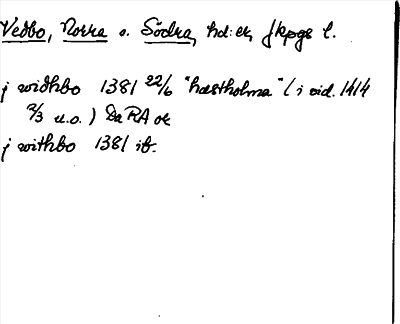 Vedbo, Norra o. Södra, hd:er, Jkpgs l.
j widhbo 1381 22/6 "hæstholma" (i vid. 1414
2/3 u.o.) Da RA ok
j withbo 1381 ib.